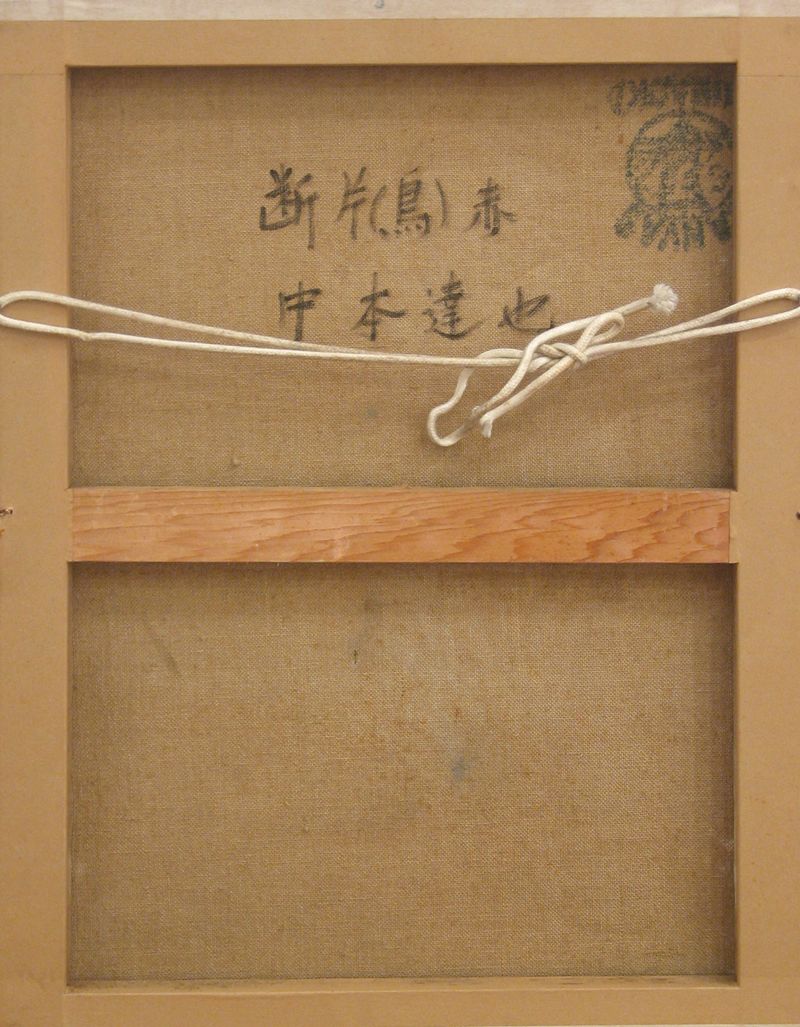 断片(鳥)赤
中本達也